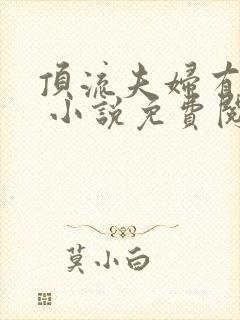 頂流夫婦有
小說免費閱
莫小白